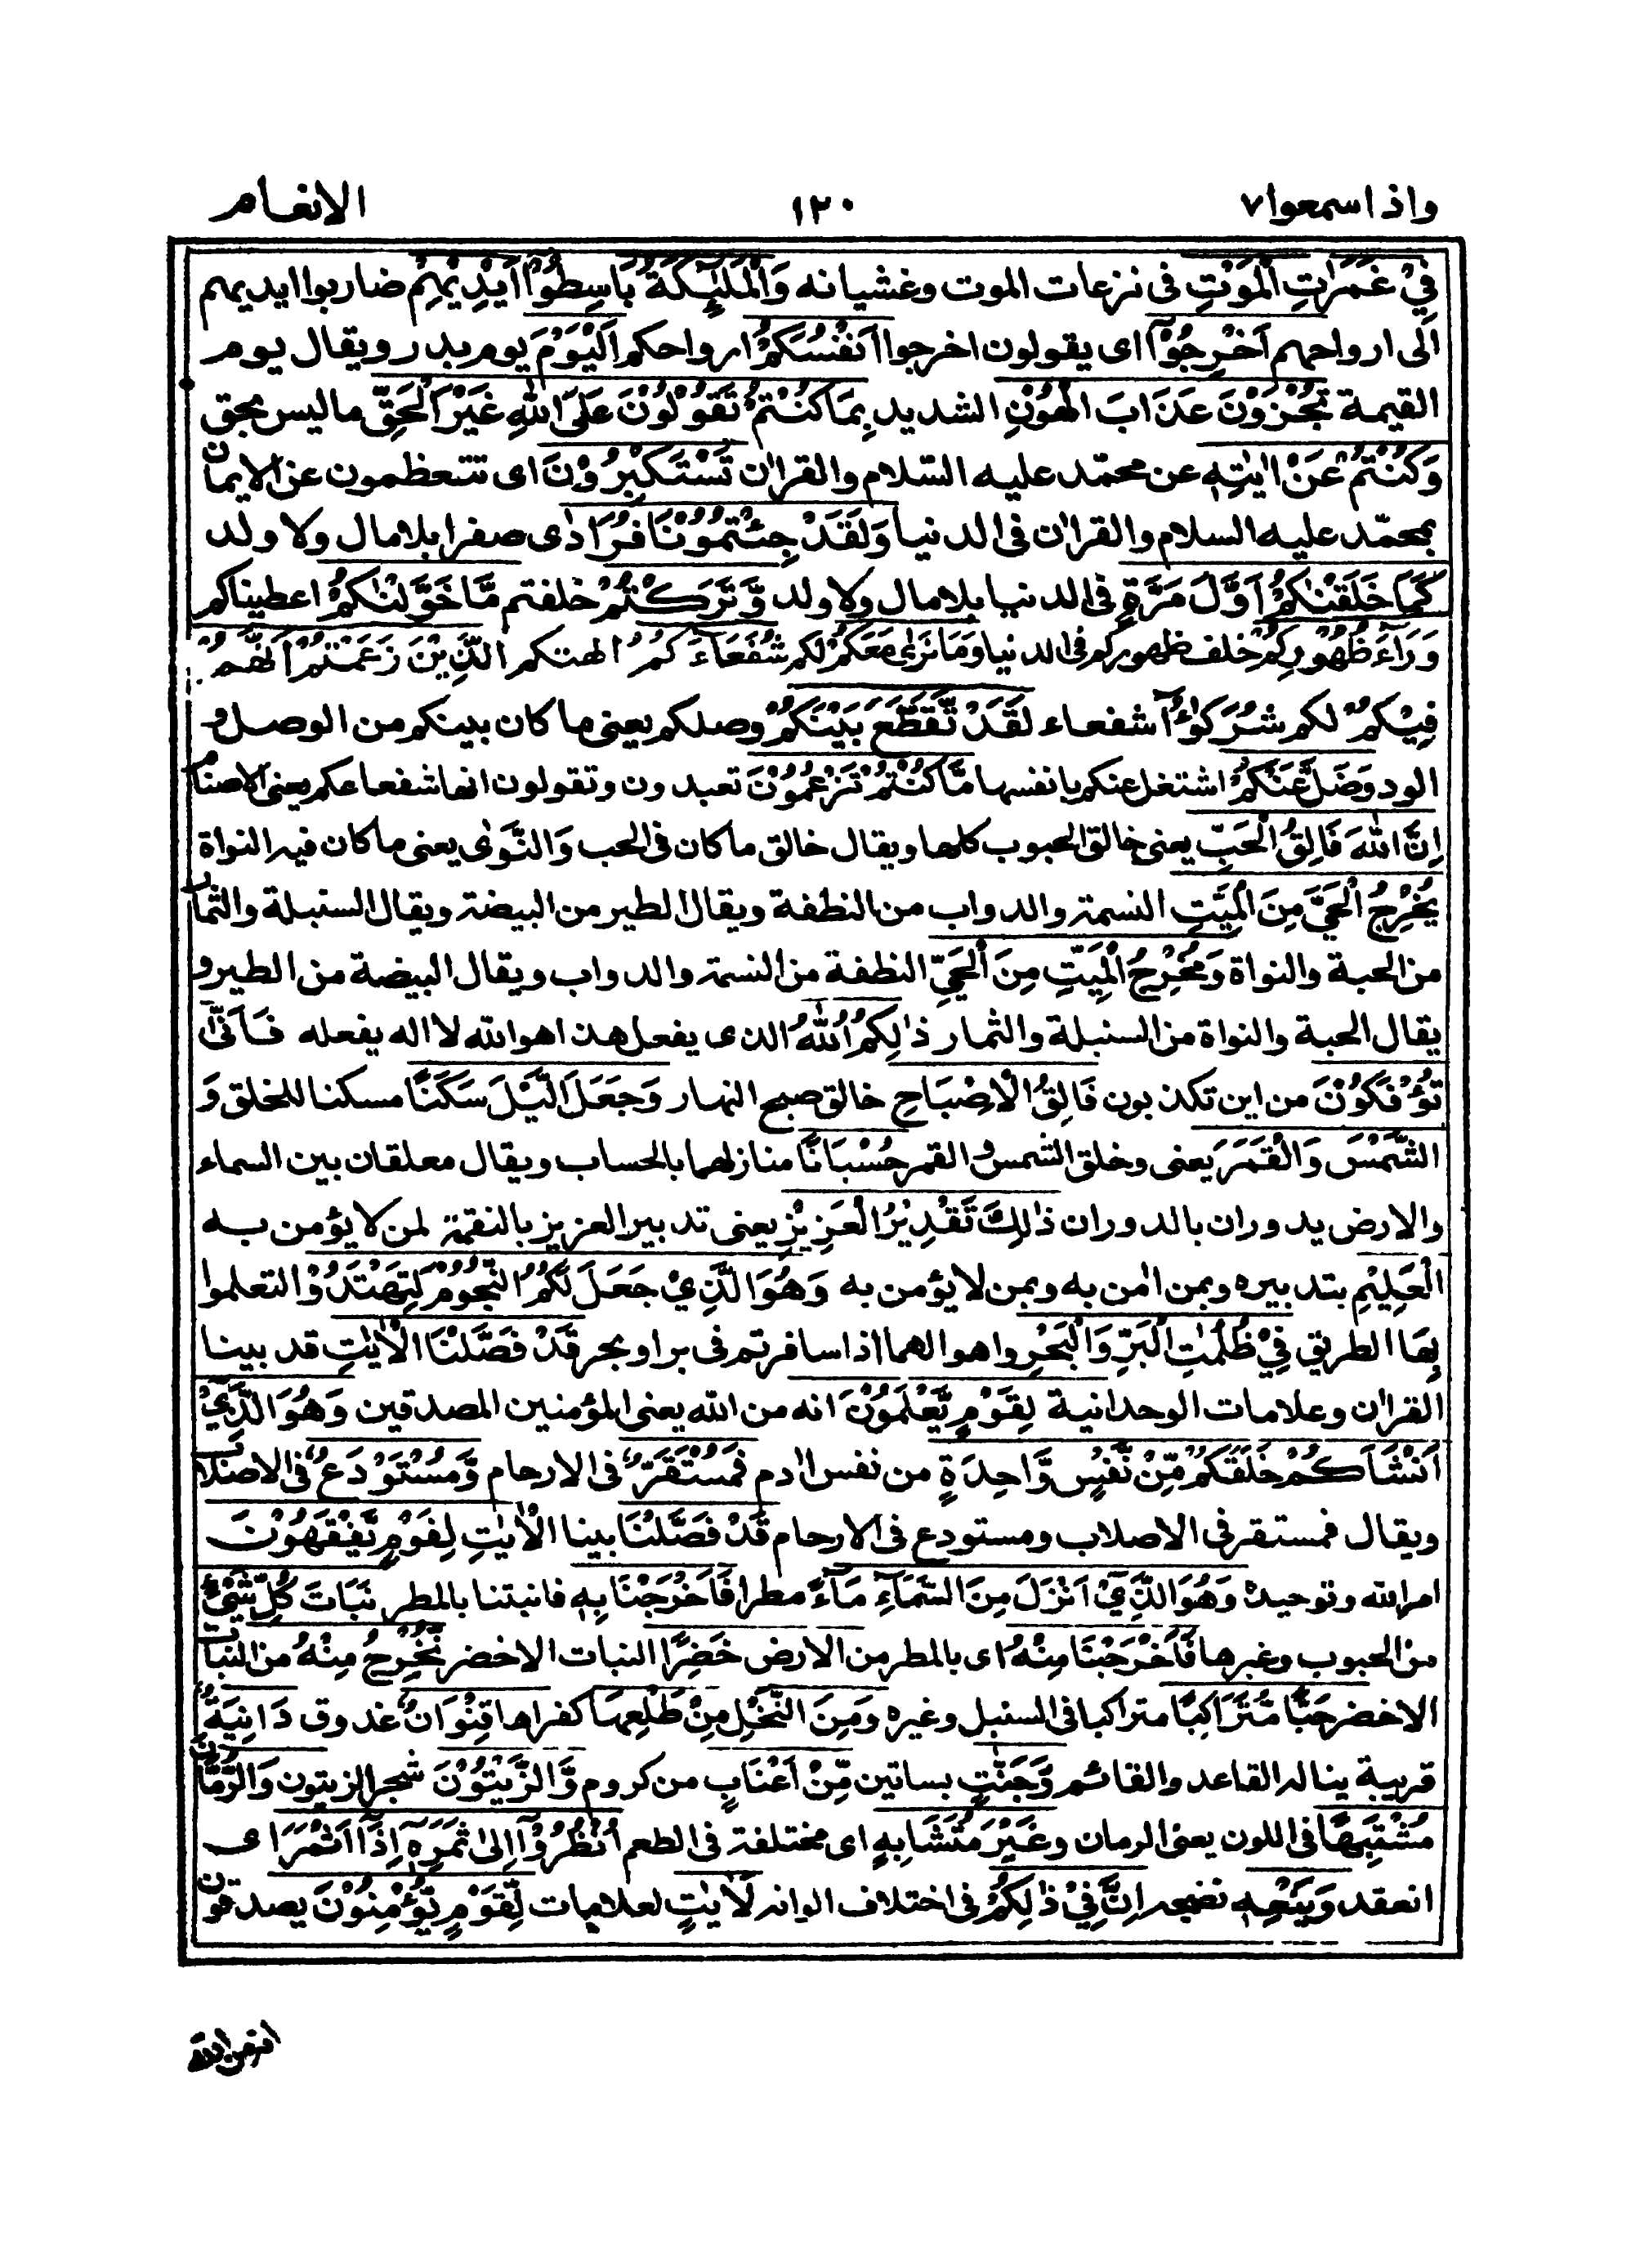 واذاسمعوا۷
۱۲۰
الانعـام
فِيْ غَمَرٰتِ الْمَوْتِ فی نزعات الموت وغشیانه وَالْمَلٰٓئِكَةُ بَاسِطُوْٓا اَيْدِيْهِمْ ضاربوا ایدیهم
الی ارواحهم اَخْرِجُوْٓا ای یقولون اخرجوا اَنْفُسَكُمْ ارواحکم اَلْيَوْمَ یوم بدر ویقال یوم
القیمة تُجْزَوْنَ عَذَابَ الْهُوْنِ الشدید بِمَا كُنْتُمْ تَقُوْلُوْنَ عَلَى اللّٰهِ غَيْرَ الْحَقِّ مالیس بحق
وَكُنْتُمْ عَنْ اٰيٰتِهٖ عن محمّد علیه السّلام والقراٰن تَسْتَكْبِرُوْنَ ای تتعظمون عن الایمان
بمحمّد علیه السلام والقراٰن فی الدنیا وَلَقَدْ جِئْتُمُوْنَا فُرَادٰى صفرا بلامال ولا ولد
كَمَا خَلَقْنٰكُمْ اَوَّلَ مَرَّةٍ فی الدنیا بلامال ولا ولد وَّتَرَكْتُمْ خلفتم مَّا خَوَّلْنٰكُمْ اعطیناکم
وَرَآءَ ظُهُوْرِكُمْ خلف ظهورکم فی الدنیا وَمَا نَرٰى مَعَكُمْ لکم شُفَعَآءَكُمُ الهتکم الَّذِيْنَ زَعَمْتُمْ اَنَّهُمْ
فِيْكُمْ لکم شُرَكٰٓؤُا شفعاء لَقَدْ تَّقَطَّعَ بَيْنَكُمْ وصلکم یعنی ما کان بینکم من الوصل و
الود وَضَلَّ عَنْكُمْ اشتغل عنکم بانفسها مَّا كُنْتُمْ تَزْعُمُوْنَ تعبدون وتقولون انها شفعاءکم یعنی الاصنام
اِنَّ اللّٰهَ فَالِقُ الْحَبِّ یعنی خالق الحبوب کلها ویقال خالق ما کان فی الحب وَالنَّوٰى یعنی ما کان فیه النواة
يُخْرِجُ الْحَيَّ مِنَ الْمَيِّتِ النسمة والدواب من النطفة ویقال الطیر من البیضة ویقال السنبلة والثمار
من الحبة والنواة وَمُخْرِجُ الْمَيِّتِ مِنَ الْحَيِّ النطفة من النسمة والدواب ویقال البیضة من الطیر و
یقال الحبة والنواة من السنبلة والثمار ذٰلِكُمُ اللّٰهُ الذی یفعل هذا هو الله لا اله یفعله فَاَنّٰى
تُؤْفَكُوْنَ من این تکذبون فَالِقُ الْاِصْبَاحِ خالق صبح النهار وَجَعَلَ الَّيْلَ سَكَنًا مسکنا للخلق وَ
الشَّمْسَ وَالْقَمَرَ یعنی وخلق الشمس والقمر حُسْبَانًا منازلهما بالحساب ویقال معلقان بین السماء
والارض یدوران بالدوران ذٰلِكَ تَقْدِيْرُ الْعَزِيْزِ یعنی تدبیر العزیز بالنقمة لمن لا یؤمن به
الْعَلِيْمِ بتدبیره وبمن اٰمن به وبمن لا یؤمن به وَهُوَ الَّذِيْ جَعَلَ لَكُمُ النُّجُوْمَ لِتَهْتَدُوْا لتعلموا
بِهَا الطریق فِيْ ظُلُمٰتِ الْبَرِّ وَالْبَحْرِ واهوالهما اذا سافرتم فی بر او بحر قَدْ فَصَّلْنَا الْاٰيٰتِ قد بینا
القراٰن وعلامات الوحدانیة لِقَوْمٍ يَّعْلَمُوْنَ انه من الله یعنی المؤمنین المصدقین وَهُوَ الَّذِيْٓ
اَنْشَاَكُمْ خَلَقَكُمْ مِّنْ نَّفْسٍ وَّاحِدَةٍ من نفس اٰدم فَمُسْتَقَرٌّ فی الارحام وَّمُسْتَوْدَعٌ فی الاصلاب
ویقال فمستقر فی الاصلاب ومستودع فی الارحام قَدْ فَصَّلْنَا بینا الْاٰيٰتِ لِقَوْمٍ يَّفْقَهُوْنَ
امر الله وتوحیده وَهُوَ الَّذِيْٓ اَنْزَلَ مِنَ السَّمَآءِ مَآءً مطرا فَاَخْرَجْنَا بِهٖ فانبتنا بالمطر نَبَاتَ كُلِّ شَيْءٍ
من الحبوب وغیرها فَاَخْرَجْنَا مِنْهُ ای بالمطر من الارض خَضِرًا النبات الاخضر نُّخْرِجُ مِنْهُ من النبات
الاخضر حَبًّا مُّتَرَاكِبًا متراکبا فی السنبل وغیره وَمِنَ النَّخْلِ مِنْ طَلْعِهَا کفراها قِنْوَانٌ عذوق دَانِيَةٌ
قریبة یناله القاعد والقائم وَّجَنّٰتٍ بساتین مِّنْ اَعْنَابٍ من کروم وَّالزَّيْتُوْنَ شجر الزیتون وَالرُّمَّانَ
مُشْتَبِهًا فی اللون یعنی الرمان وغَيْرَ مُتَشَابِهٍ ای مختلفة فی الطعم اُنْظُرُوْٓا اِلٰى ثَمَرِهٖٓ اِذَآ اَثْمَرَ ای
انعقد وَيَنْعِهٖ نضجه اِنَّ فِيْ ذٰلِكُمْ فی اختلاف الوانه لَاٰيٰتٍ لعلامات لِّقَوْمٍ يُّؤْمِنُوْنَ یصدقون
انه من الله